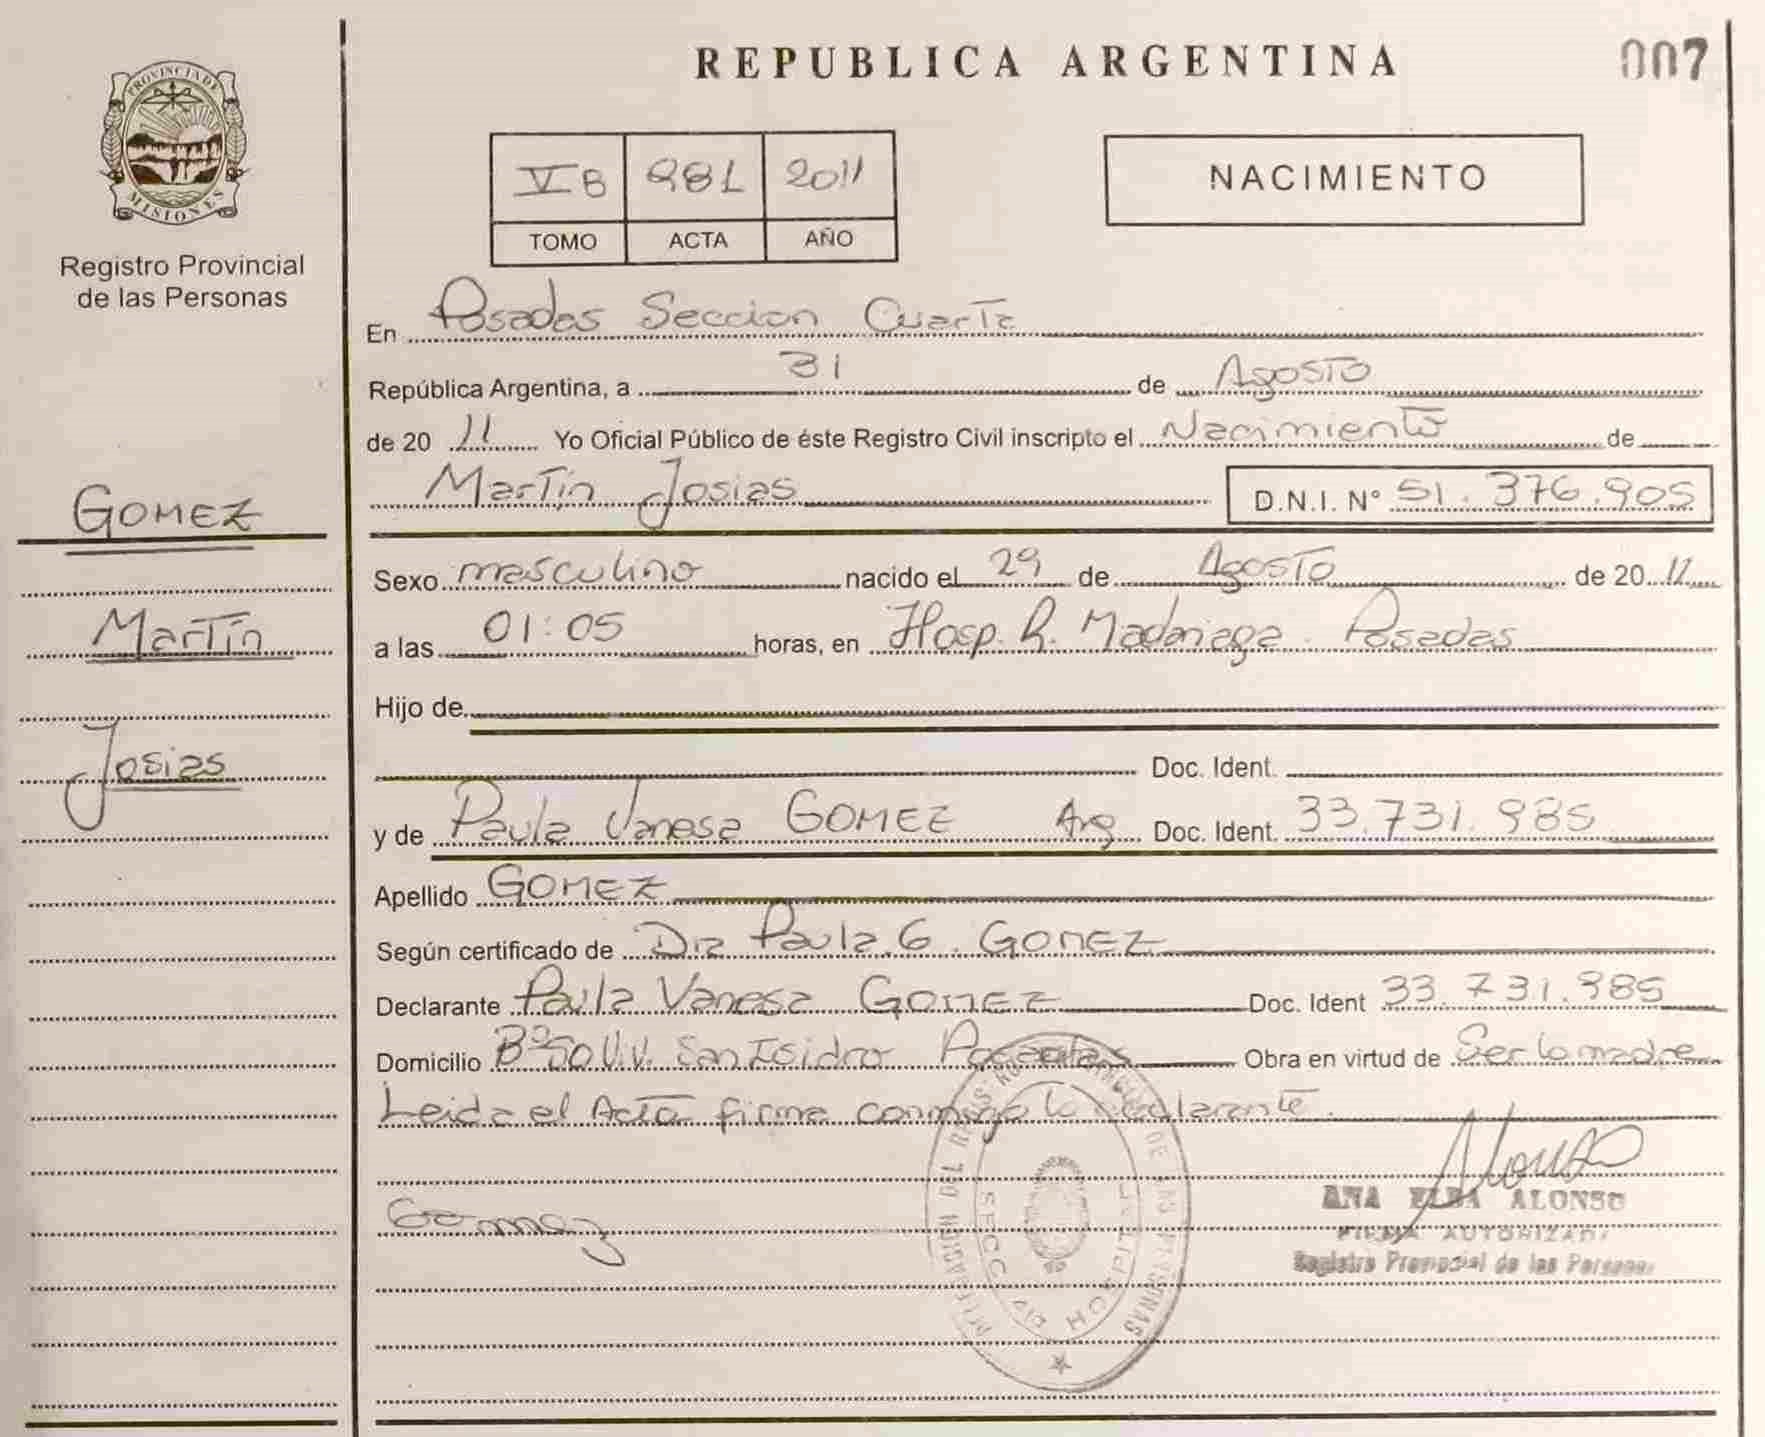 REPUBLICA ARGENTINA
007
PROVINCIA DE
MISIONES
Registro Provincial
de las Personas
V B 981 2011
TOMO ACTA AÑO
NACIMIENTO
En Posadas Seccion Cuarta
República Argentina, a 31 de Agosto
de 20 11 Yo Oficial Público de éste Registro Civil inscripto el Nacimiento de
Martín Josias D.N.I. N° 51.376.905
GOMEZ
Martín
Josias
Sexo masculino nacido el 29 de Agosto de 20 11
a las 01:05 horas, en Hosp. R. Madariaga. Posadas
Hijo de
Doc. Ident.
y de Paula Vanesa GOMEZ Arg Doc. Ident. 33.731.985
Apellido GOMEZ
Según certificado de Dra Paula G. GOMEZ
Declarante Paula Vanesa GOMEZ Doc. Ident 33.731.985
Domicilio B° 50 V.V. San Isidro Posadas Obra en virtud de Ser la madre
Leida el Acta firma conmigo la declarante.
Gomez
Alonso
ANA ELBA ALONSO
FIRMA AUTORIZADA
Registro Provincial de las Personas
SECC HOSPITAL